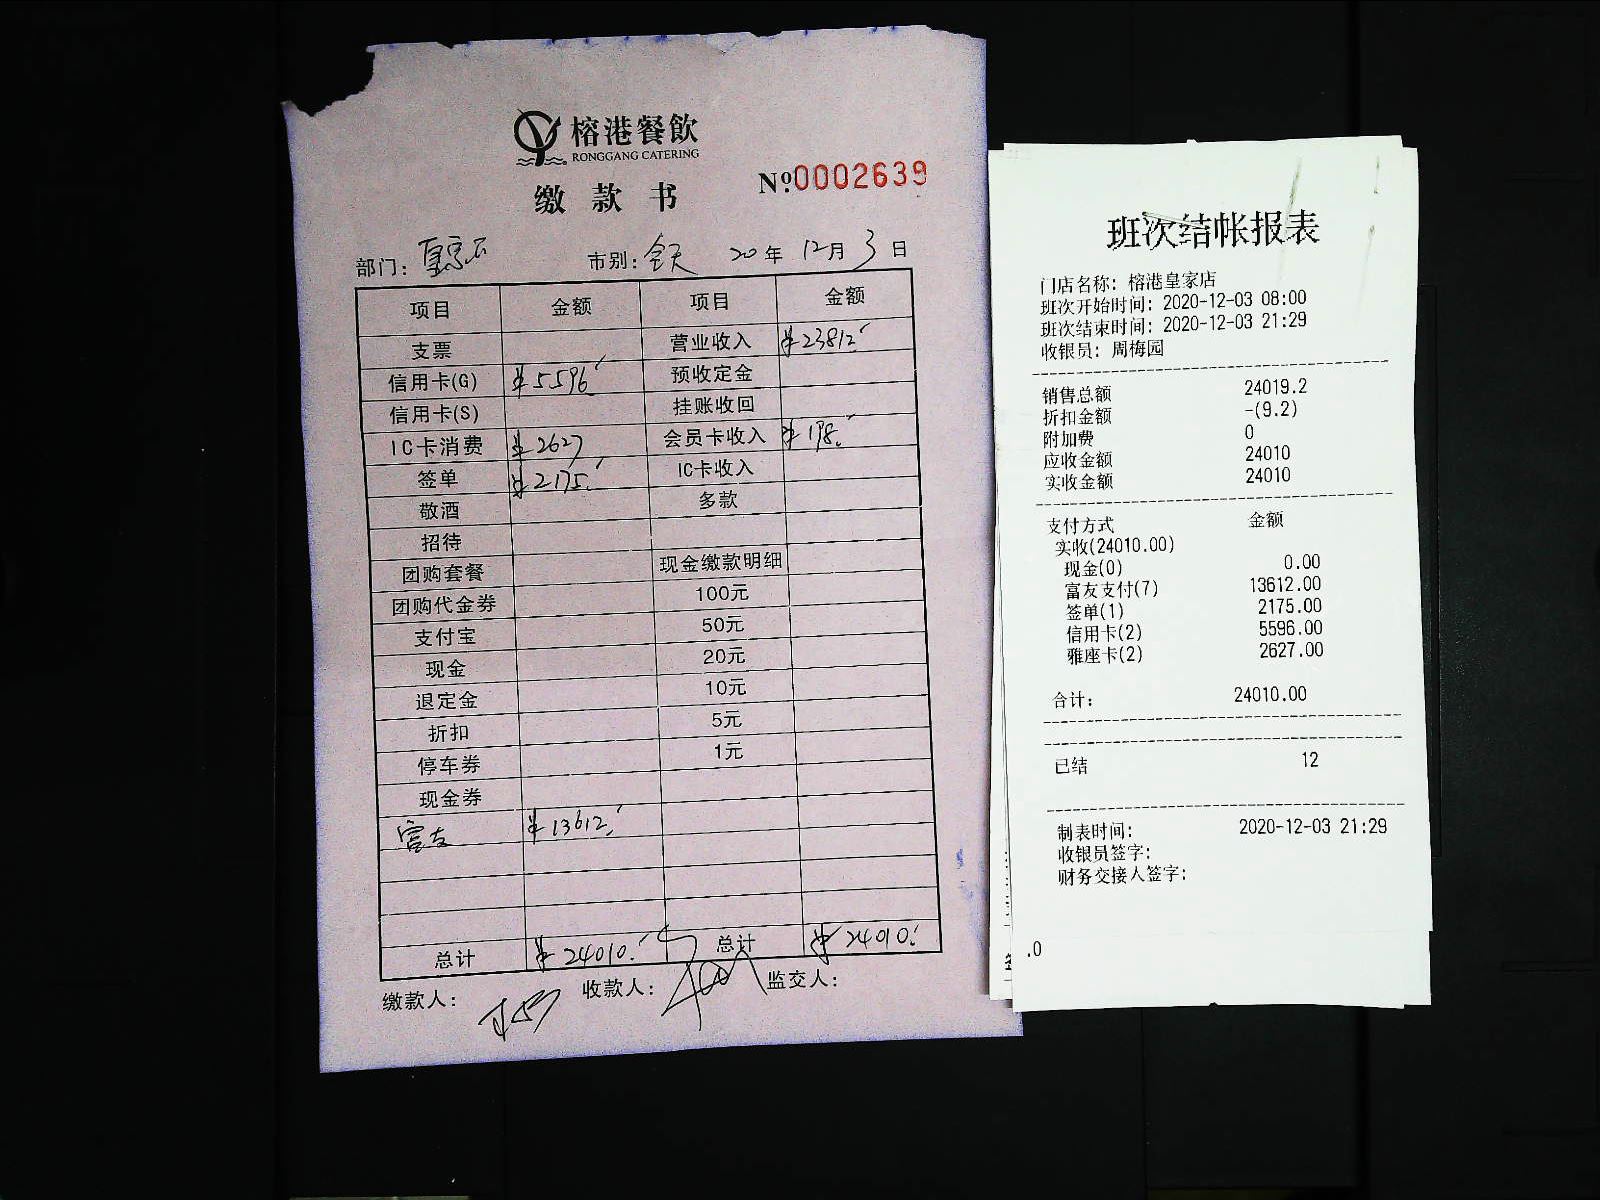 榕港餐飲
RONGGANG CATERING
缴款书
№:0002639
部门: 市别: 全天 20年 12月 3日
项目 金额 项目 金额
支票 营业收入 ¥23812.
信用卡(G) ¥5596 预收定金
信用卡(S) 挂账收回
IC卡消费 ¥2627 会员卡收入 ¥198.
签单 ¥2175. IC卡收入
敬酒 多款
招待
团购套餐 现金缴款明细
团购代金券 100元
支付宝 50元
现金 20元
退定金 10元
折扣 5元
停车券 1元
现金券
富友 ¥13612.
总计 ¥24010. 总计 ¥24010.
缴款人: 收款人: 监交人:
班次结帐报表
门店名称: 榕港皇家店
班次开始时间: 2020-12-03 08:00
班次结束时间: 2020-12-03 21:29
收银员: 周梅园
销售总额 24019.2
折扣金额 -(9.2)
附加费 0
应收金额 24010
实收金额 24010
支付方式 金额
实收(24010.00)
现金(0) 0.00
富友支付(7) 13612.00
签单(1) 2175.00
信用卡(2) 5596.00
雅座卡(2) 2627.00
合计: 24010.00
已结 12
制表时间: 2020-12-03 21:29
收银员签字:
财务交接人签字:
.0